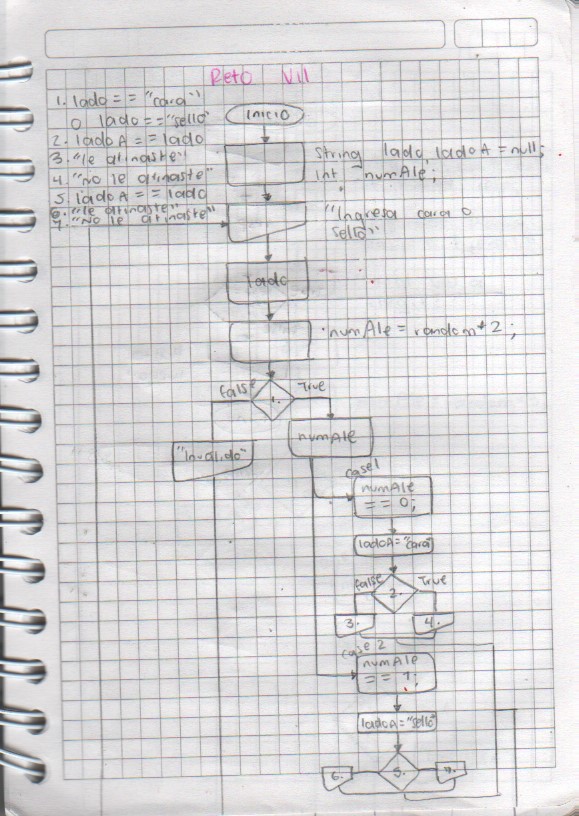 Reto VIII
1. lado == "cara"
O lado == "sello"
2. lado A == lado
3. "le atinaste"
4. "no le atinaste"
5. lado A == lado
6. "le atinaste"
7. "No le atinaste"
Inicio
String lado, lado A = null;
Int numAle;
"Ingresa cara o
sello"
lado
numAle = random * 2;
false
True
1.
"Invalido"
numAle
case 1
numAle
== 0;
lado A = "cara"
false
True
2.
3.
4.
case 2
numAle
== 1;
lado A = "sello"
6.
5.
7.